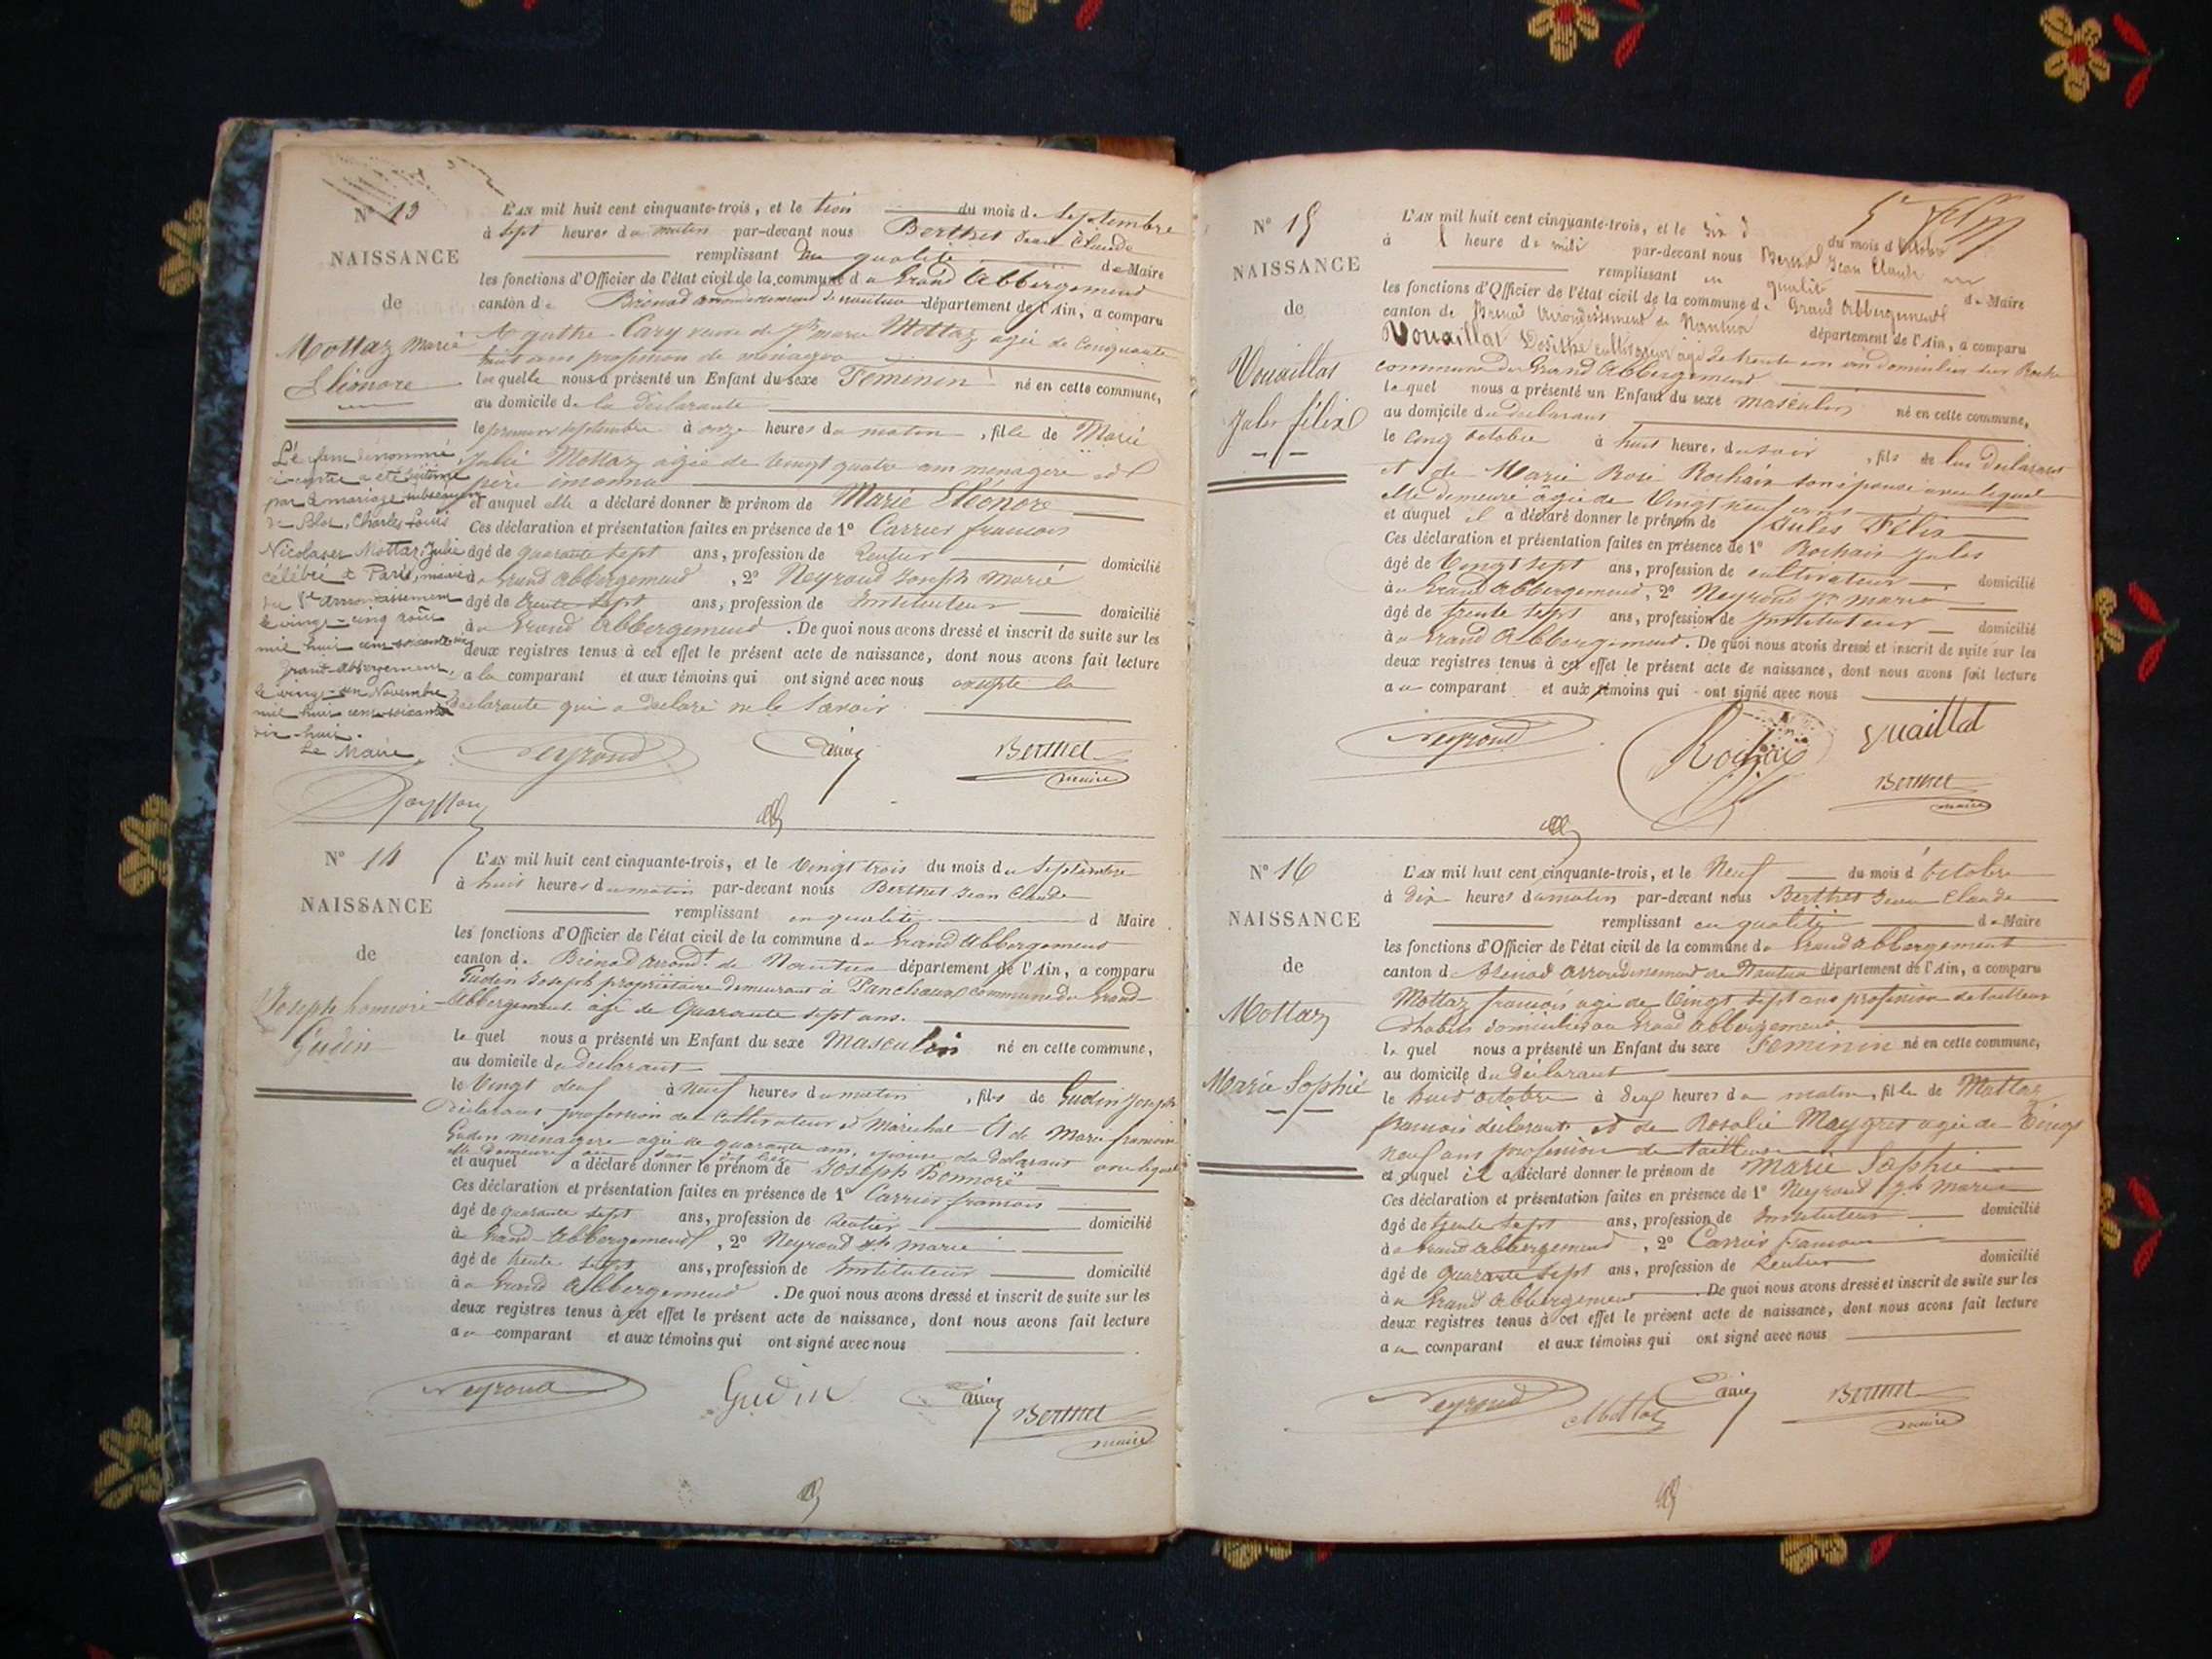 N° 13
NAISSANCE
de
Mottaz Marie
Eléonore
L'AN mil huit cent cinquante-trois, et le trois du mois de Septembre
à sept heures du matin par-devant nous Berthet Jean Claude
remplissant en qualité de Maire
les fonctions d'Officier de l'état civil de la commune du Grand Abbergement
canton de Brénod arrondissement de nantua département de l'Ain, a comparu
Agathe Cary veuve de Mottaz agée de Cinquante
huit ans profession de ménagère
laquelle nous a présenté un Enfant du sexe Feminin né en cette commune,
au domicile de la Déclarante
le premier septembre à onze heures du matin, fille de Marie
Julie Mottaz agée de vingt quatre ans ménagère et
père inconnu
et auquel elle a déclaré donner le prénom de Marie Eléonore
Ces déclaration et présentation faites en présence de 1° Carrier francois
âgé de quarante sept ans, profession de Rentier domicilié
à Grand Abbergement, 2° Neyroud Joseph Marie
âgé de trente sept ans, profession de Instituteur domicilié
à Grand Abbergement. De quoi nous avons dressé et inscrit de suite sur les
deux registres tenus à cet effet le présent acte de naissance, dont nous avons fait lecture
a la comparant et aux témoins qui ont signé avec nous excepté la
déclarante qui a déclaré ne le Savoir
L'enfant dénommé
ci-contre a été légitimé
par le mariage subséquent
de Blot, Charles Louis
Nicolas et Mottaz, Julie
célébré à Paris, mairie
du arrondissement
le vingt-cinq août
mil huit cent soixante-six
Grand-Abbergement,
le vingt-un Novembre
mil huit cent soixante
dix-huit.
Le Maire
Neyroud Berthet
maire
N° 14
NAISSANCE
de
Joseph honnoré
Gudin
L'AN mil huit cent cinquante-trois, et le Vingt trois du mois de Septembre
à huit heures du matin par-devant nous Berthet Jean Claude
remplissant en qualité d Maire
les fonctions d'Officier de l'état civil de la commune du Grand Abbergement
canton de Brénod arrondt de Nantua département de l'Ain, a comparu
Gudin Joseph propriétaire demeurant à Panchaux commune du Grand
Abbergement agé de Quarante sept ans.
lequel nous a présenté un Enfant du sexe Masculin né en cette commune,
au domicile du declarant
le Vingt deux à Neuf heures du matin, fils de Gudin Joseph
Déclarant profession de Cultivateur et Maréchal et de Marie francoise
Gudin ménagère agée de quarante ans, épouse du déclarant avec lequel
elle demeure
et auquel a déclaré donner le prénom de Joseph Honnoré
Ces déclaration et présentation faites en présence de 1° Carrier francois
âgé de quarante sept ans, profession de Rentier domicilié
à Grand Abbergement, 2° Neyroud Jh Marie
âgé de trente sept ans, profession de Instituteur domicilié
à Grand Abbergement. De quoi nous avons dressé et inscrit de suite sur les
deux registres tenus à cet effet le présent acte de naissance, dont nous avons fait lecture
au comparant et aux témoins qui ont signé avec nous
Neyroud Gudin Berthet
maire
N° 15
NAISSANCE
de
Vouaillat
Jules félix
L'AN mil huit cent cinquante-trois, et le Six du mois d'Octobre
à heure de midi par-devant nous Berthet Jean Claude
remplissant en qualité de Maire
les fonctions d'Officier de l'état civil de la commune de Grand Abbergement
canton de Brénod Arrondissement de Nantua département de l'Ain, a comparu
Vouaillat Dosithé cultivateur agé de trente un an domicilié sur Roche
commune du Grand Abbergement
lequel nous a présenté un Enfant du sexe masculin né en cette commune,
au domicile du declarant
le Cinq octobre à huit heures du soir, fils de lui Déclarant
et de Marie Rose Rochaix son épouse avec lequel
elle demeure âgée de Vingt neuf ans
et auquel il a déclaré donner le prénom de Jules Félix
Ces déclaration et présentation faites en présence de 1° Rochaix Jules
âgé de Vingt sept ans, profession de cultivateur domicilié
à Grand Abbergement, 2° Neyroud Jh marie
âgé de trente sept ans, profession de Instituteur domicilié
à Grand Abbergement. De quoi nous avons dressé et inscrit de suite sur les
deux registres tenus à cet effet le présent acte de naissance, dont nous avons fait lecture
au comparant et aux témoins qui ont signé avec nous
Neyroud Rochaix Vuaillat
Berthet
maire
N° 16
NAISSANCE
de
Mottaz
Marie Sophie
L'AN mil huit cent cinquante-trois, et le Neuf du mois d'Octobre
à Dix heures du matin par-devant nous Berthet Jean Claude
remplissant en qualité de Maire
les fonctions d'Officier de l'état civil de la commune du Grand Abbergement
canton d Brénod Arrondissement de Nantua département de l'Ain, a comparu
Mottaz francois agé de Vingt sept ans profession de tailleur
d'habits domicilié au Grand Abbergement
lequel nous a présenté un Enfant du sexe Feminin né en cette commune,
au domicile du Déclarant
le huit octobre à deux heures du matin, fille de Mottaz
francois déclarant et de Rosalie Maygret agée de Vingt
neuf ans profession de tailleuse
et auquel il a déclaré donner le prénom de Marie Sophie
Ces déclaration et présentation faites en présence de 1° Neyroud Jh Marie
âgé de trente sept ans, profession de Instituteur domicilié
à Grand Abbergement, 2° Carrier francois
âgé de quarante sept ans, profession de Rentier domicilié
à Grand Abbergement. De quoi nous avons dressé et inscrit de suite sur les
deux registres tenus à cet effet le présent acte de naissance, dont nous avons fait lecture
au comparant et aux témoins qui ont signé avec nous
Neyroud Mottaz Berthet
maire